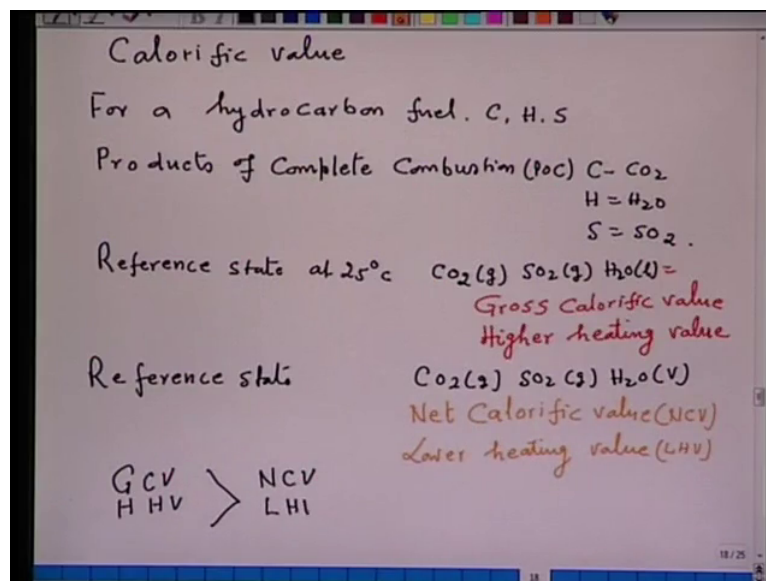 Calorific value
For a hydrocarbon fuel. C, H. S
Products of Complete Combustion (POC) C - CO2
H = H2O
S = SO2.
Reference state at 25°C CO2(g) SO2(g) H2O(l) =
Gross Calorific value
Higher heating value
Reference state CO2(g) SO2(g) H2O(V)
Net Calorific value (NCV)
Lower heating value (LHV)
GCV > NCV
HHV LHI
18/25
18